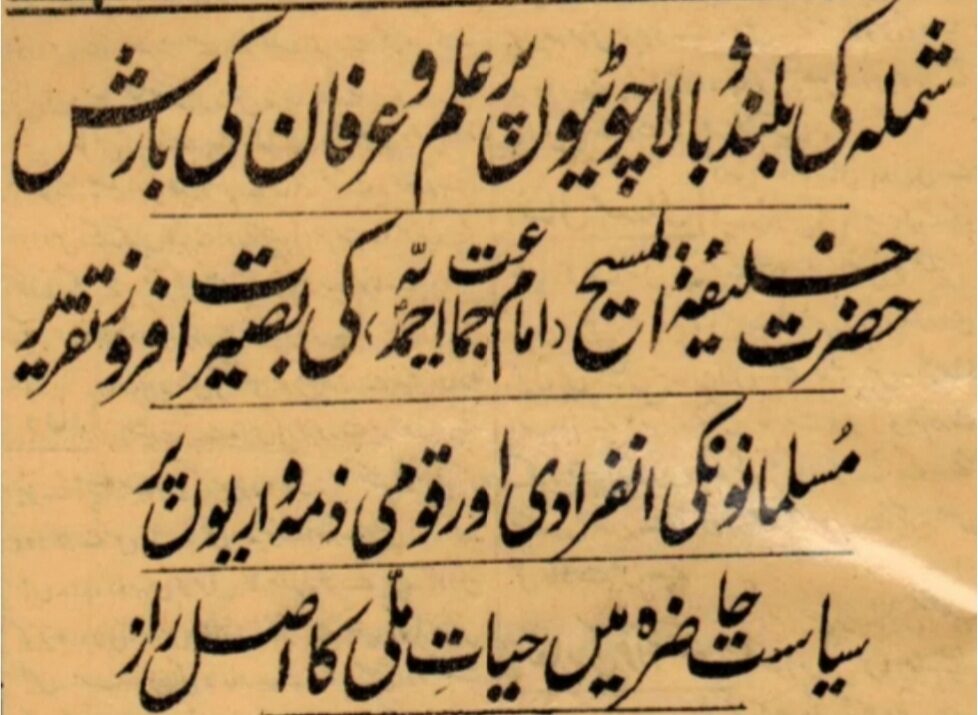 شملہ کی بلند و بالا چوٹیوں پر علم و عرفان کی بارش
حضرت خلیفۃ المسیح (امام جماعت احمدیہ) کی بصیرت افروز تقریر
مسلمانونکی انفرادی اور قومی ذمہ واریوں پر
سیاست حاضرہ میں حیات ملّی کا اصل راز